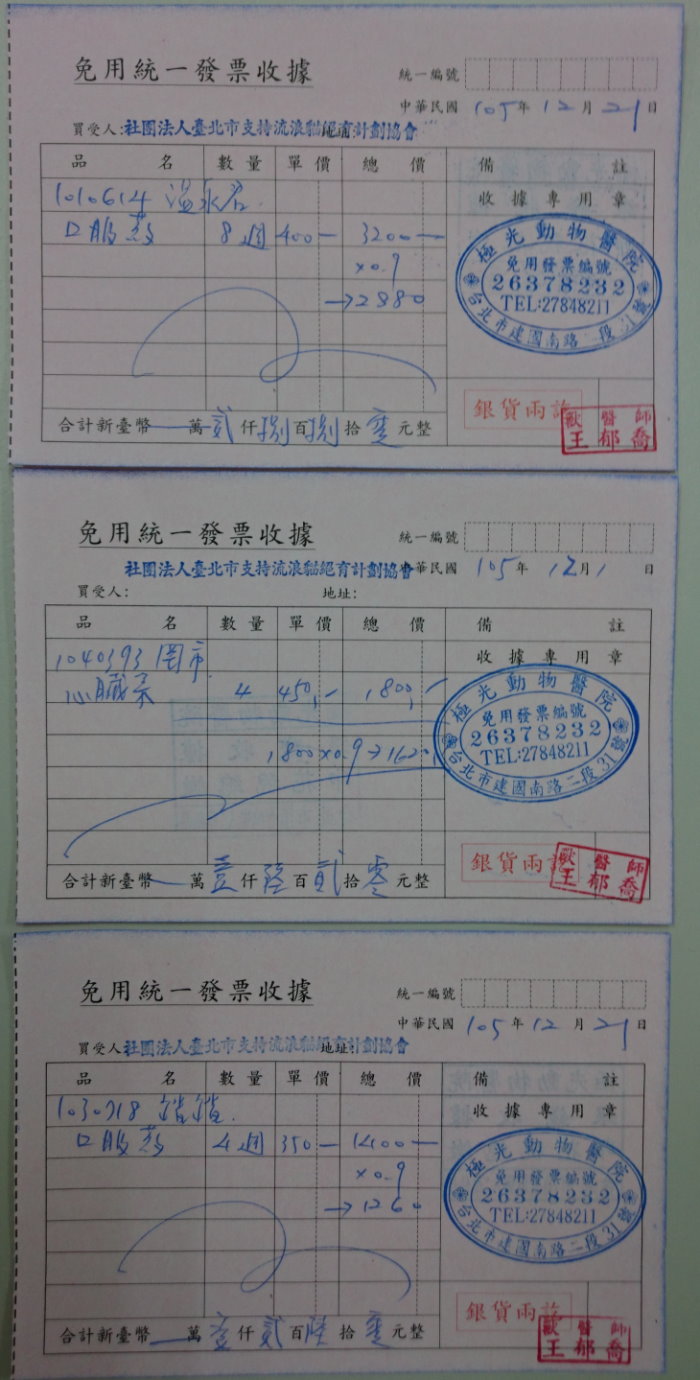 免用統一發票收據
統一編號
中華民國 105年 12月 21日
買受人:社團法人臺北市支持流浪貓絕育計劃協會
品名 數量 單價 總價 備註
1010614 溫泉君
收據專用章
口服藥 8週 400— 3200—
x0.9
→2880
極光動物醫院
免用發票編號
26378232
TEL:27848211
台北市建國南路二段31號
銀貨兩訖
獸醫師
王郁喬
合計新臺幣—萬貳仟捌百捌拾零元整
免用統一發票收據
統一編號
社團法人臺北市支持流浪貓絕育計劃協會
中華民國 105年 12月1日
買受人: 地址:
品名 數量 單價 總價 備註
1040393 罔市
收據專用章
心臟藥 4 450,- 1,800,-
1,800x0.9→1620
極光動物醫院
免用發票編號
26378232
TEL:27848211
台北市建國南路二段31號
銀貨兩訖
獸醫師
王郁喬
合計新臺幣—萬壹仟陸百貳拾零元整
免用統一發票收據
統一編號
中華民國 105年 12月 21日
買受人社團法人臺北市支持流浪貓絕育計劃協會
地址:
品名 數量 單價 總價 備註
1030718
收據專用章
口服藥 4週 350— 1400—
x0.9
→1260
極光動物醫院
免用發票編號
26378232
TEL:27848211
台北市建國南路二段31號
銀貨兩訖
獸醫師
王郁喬
合計新臺幣—萬壹仟貳百陸拾零元整